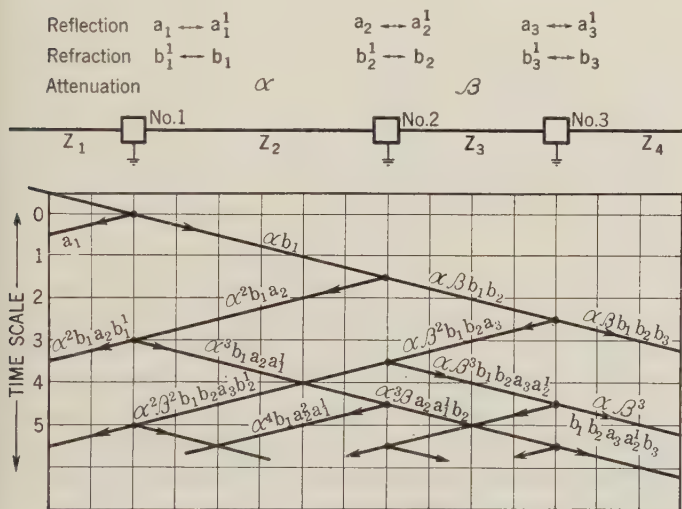 Reflection a₁ ↔ a₁¹ a₂ ↔ a₂¹ a₃ ↔ a₃¹
Refraction b₁¹ ↔ b₁ b₂¹ ↔ b₂ b₃¹ ↔ b₃
Attenuation α β
No.1 No.2 No.3
Z₁ Z₂ Z₃ Z₄
TIME SCALE
0
αb₁
a₁
1
αβb₁b₂
α²b₁a₂
2
αβb₁b₂b₃
α²b₁a₂b₁¹
αβ²b₁b₂a₃
3
α³b₁a₂a₁¹
αβ³b₁b₂a₃a₂¹
4
α²β²b₁b₂a₃b₂¹
α⁴b₁a₂²a₁¹
α³βa₂a₁¹b₂
αβ³
b₁b₂a₃a₂¹b₃
5